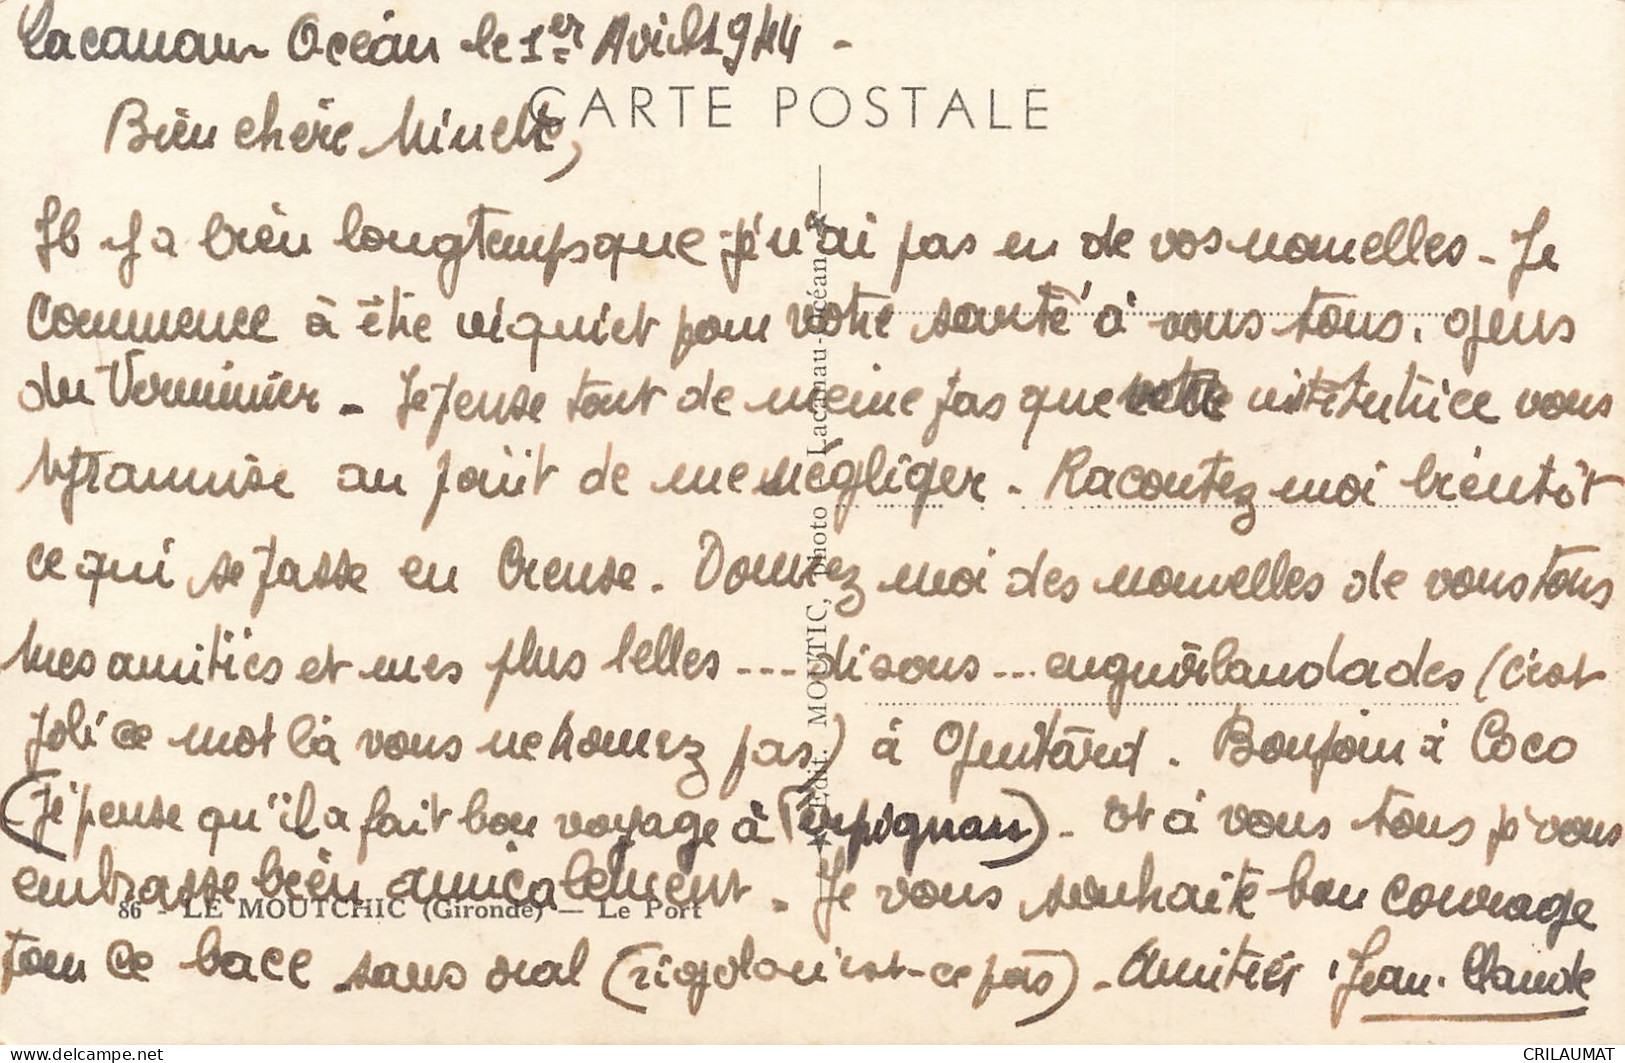 Lacanau Océan le 1er Avril 1944 -
CARTE POSTALE
Bien chère Minette,
Il y a bien longtemps que je n'ai pas eu de vos nouvelles - Je
commence à être inquiet pour votre santé à vous tous, gens
du Verminier - Je pense tout de meme pas que votre institutrice vous
tyrannise au point de me négliger. Racontez moi bientôt
ce qui se passe en Creuse. Donnez moi des nouvelles de vous tous
mes amitiés et mes plus belles --- disons ... enguirlandades (c'est
joli ce mot là vous ne trouvez pas) à Quitard. Bonjour à Coco
(je pense qu'il a fait bon voyage à Perpignan) - et à vous tous je vous
embrasse bien amicalement. Je vous souhaite bon courage
pour ce bacc sans oral (rigolo n'est-ce pas) - Amitiés. Jean-Claude
86 - LE MOUTCHIC (Gironde) — Le Port
★ Edit. MOUTIC, photo Lacanau-Océan ★
https://www.delcampe.net
CRILAUMAT